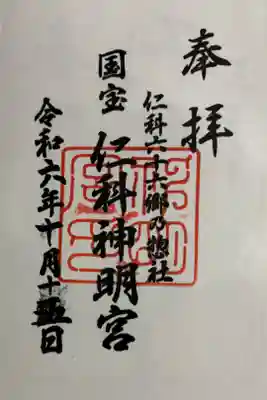 奉拝
仁科六十六郷乃惣社
国宝 仁科神明宮
令和六年十月十五日